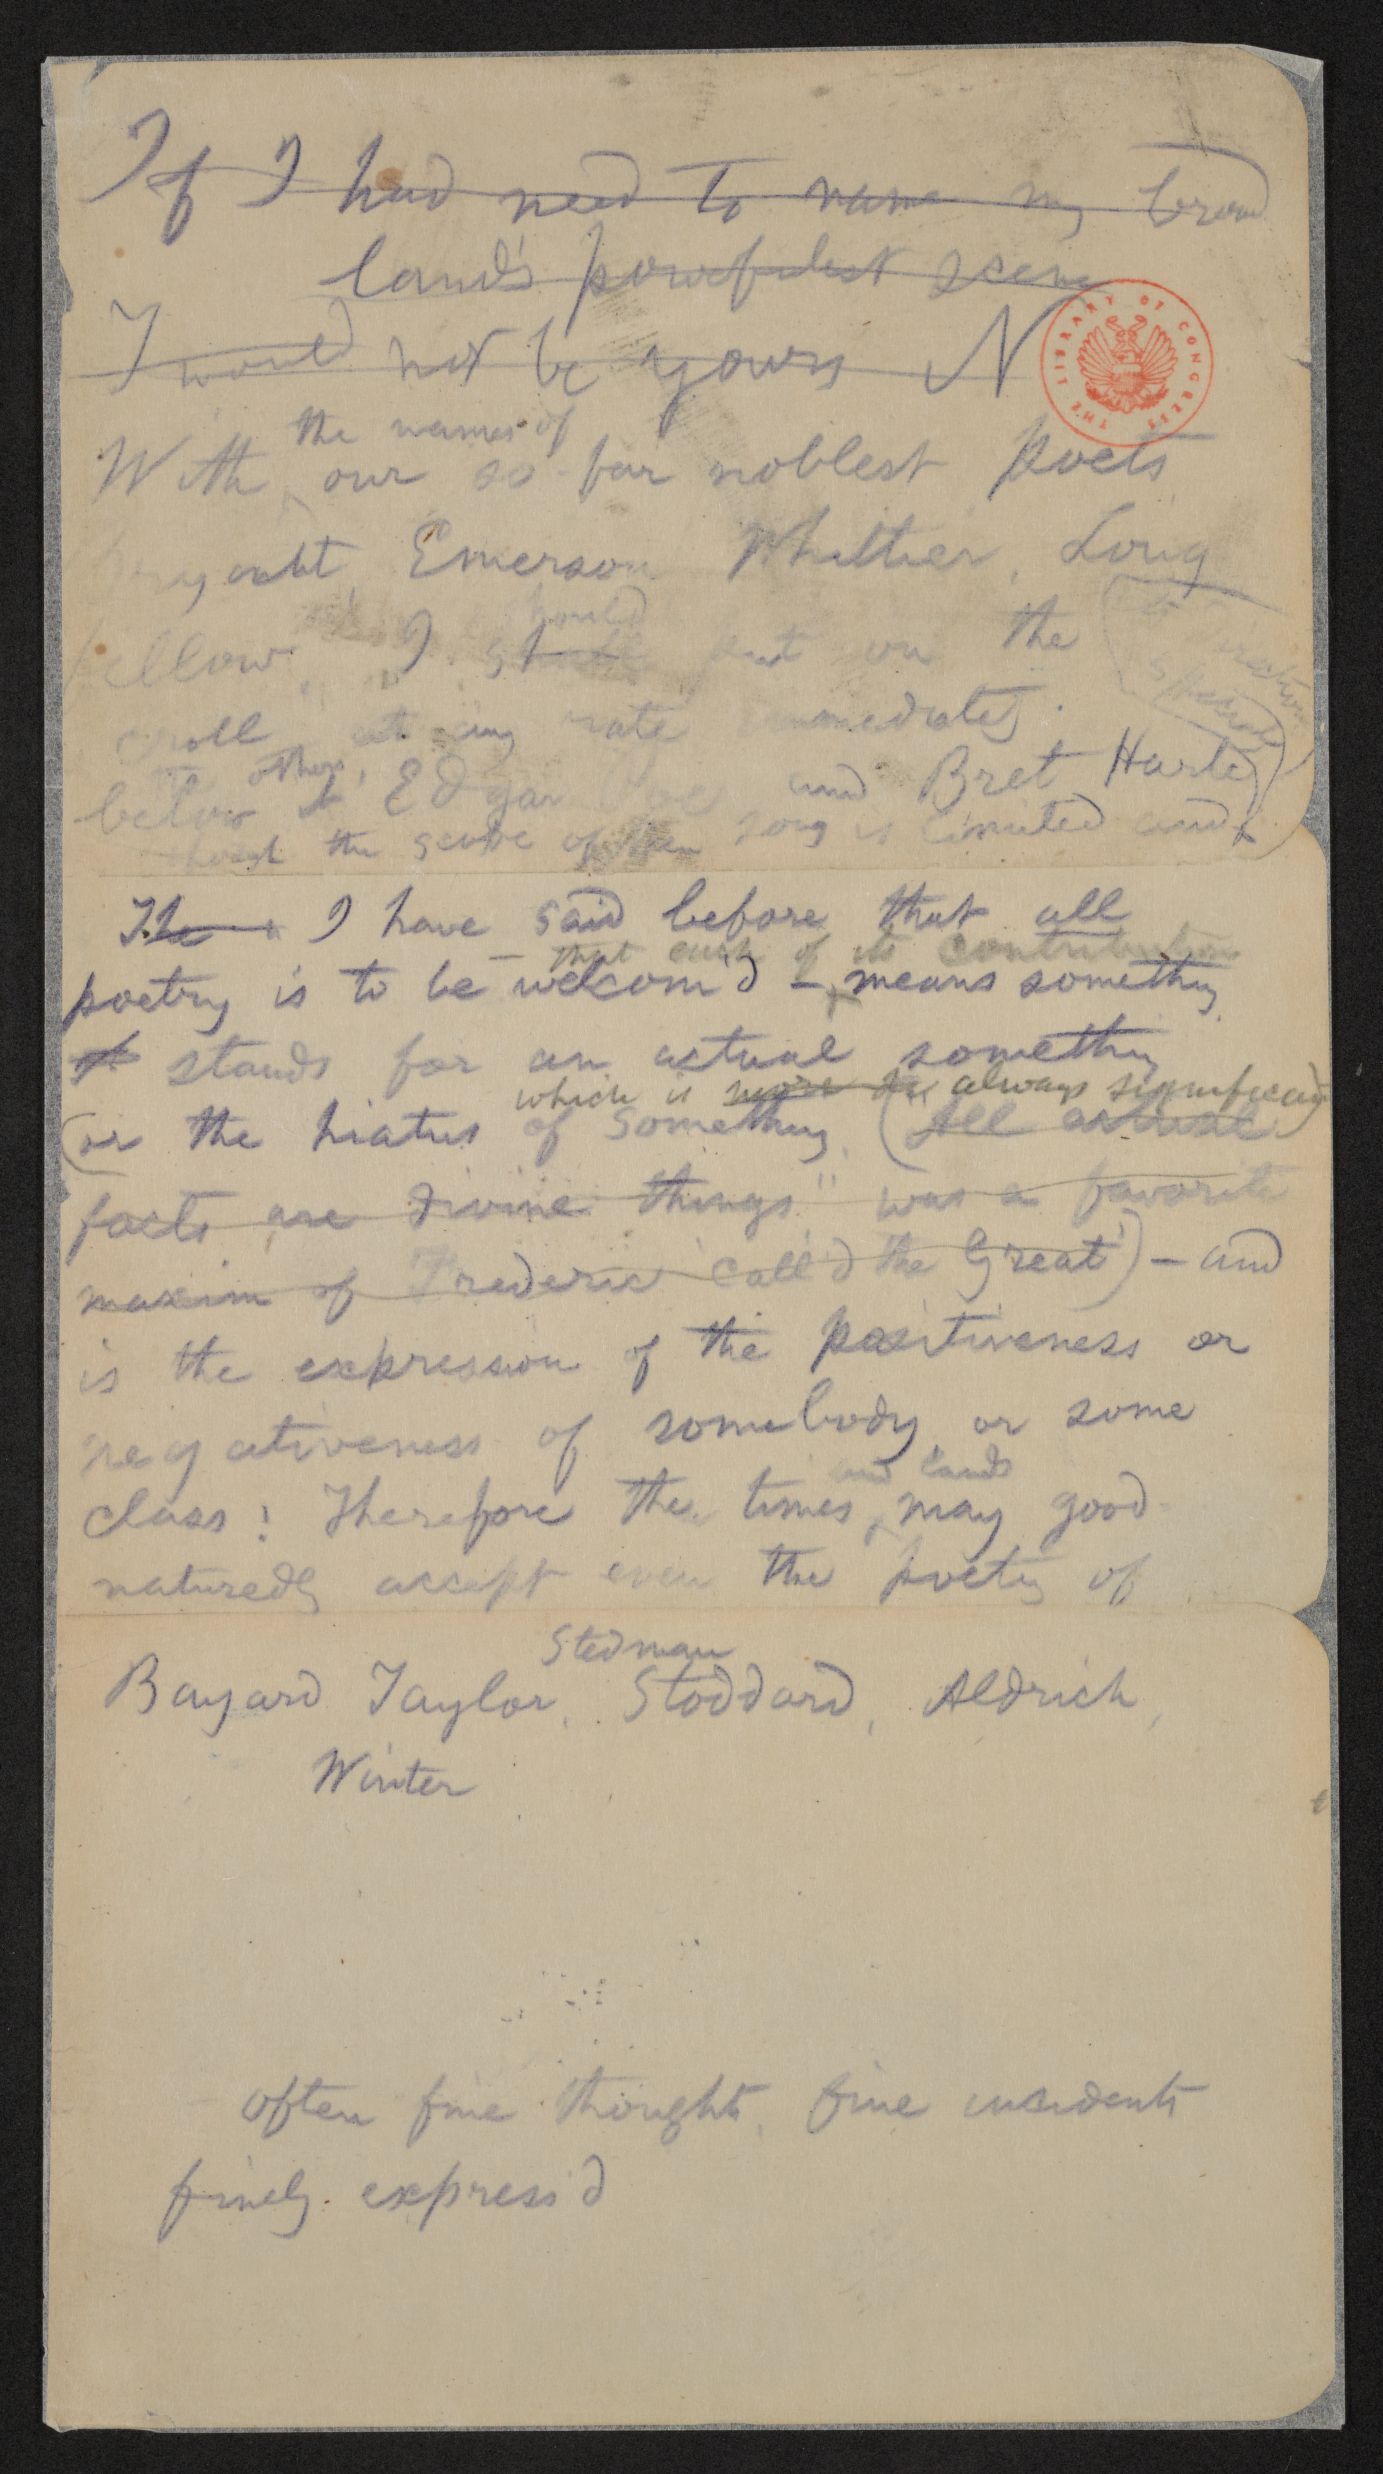 If I had need to name my broad
land's powerfulest scene
I would not be yours N
the names of
With our so-far noblest poets
Bryant, Emerson Whittier, Long
fellow, I should put on the
scroll at any rate immediately
below others, Edgar Poe and Bret Harte
though the scope of their song is limited and
THE LIBRARY OF CONGRESS
The I have said before that all
— that each of its contributions
poetry is to be welcom'd — means something
stands for an actual something
which is more always significant
(or the hiatus of something (All actual
facts are divine things" was a favorite
maxim of Frederic 'call'd the Great') — and
is the expression of the positiveness or
negativeness of somebody or some
and lands
class: Therefore the times may good-
naturedly accept even the poetry of
Stedman
Bayard Taylor, Stoddard, Aldrich,
Winter
often fine thoughts, fine incidents
finely express'd